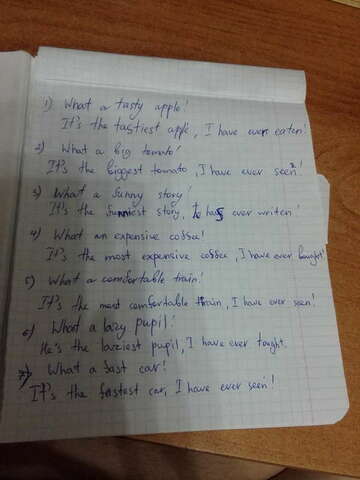 1) What a tasty apple!
It's the tastiest apple, I have ever eaten!
2) What a big tomato!
It's the biggest tomato, I have ever seen!
3) What a funny story!
It's the funniest story, to has ever writen!
4) What an expensive coffee!
It's the most expensive coffee, I have ever bought!
5) What a comfortable train!
It's the most comfortable train, I have ever seen!
6) What a lazy pupil!
He's the lazziest pupil, I have ever tought.
7) What a fast car!
It's the fastest car, I have ever seen!